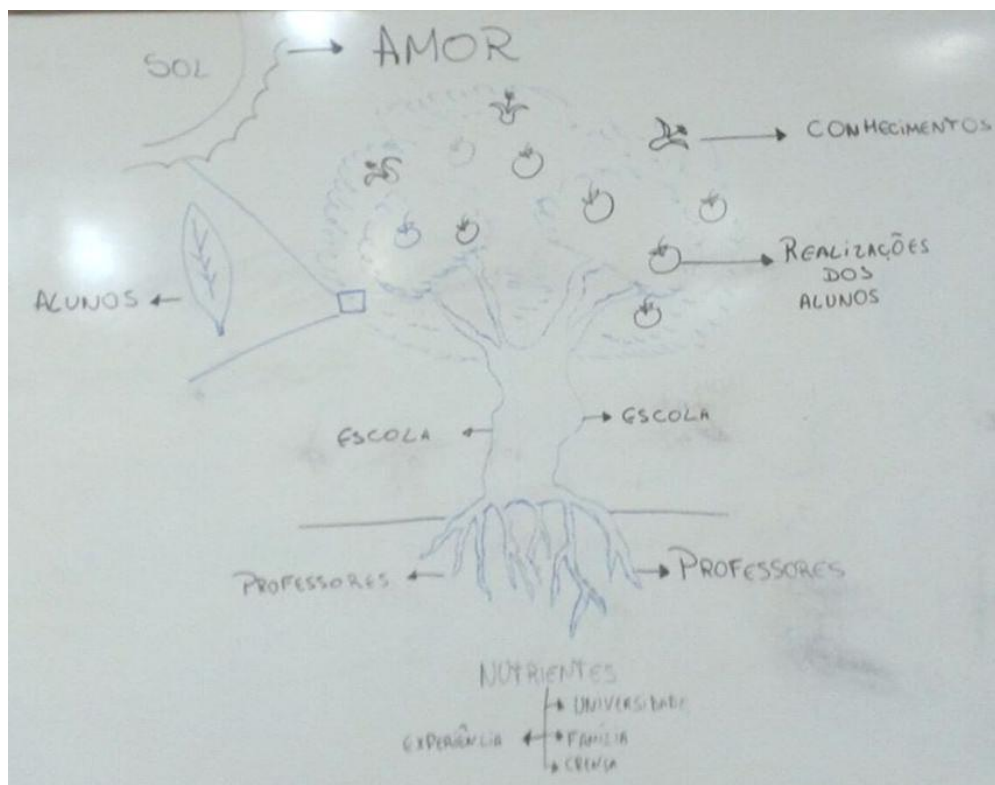 SOL
AMOR
CONHECIMENTOS
REALIZAÇÕES
DOS
ALUNOS
ALUNOS
ESCOLA
ESCOLA
PROFESSORES
PROFESSORES
NUTRIENTES
UNIVERSIDADE
EXPERIÊNCIA
FAMÍLIA
CRENÇA